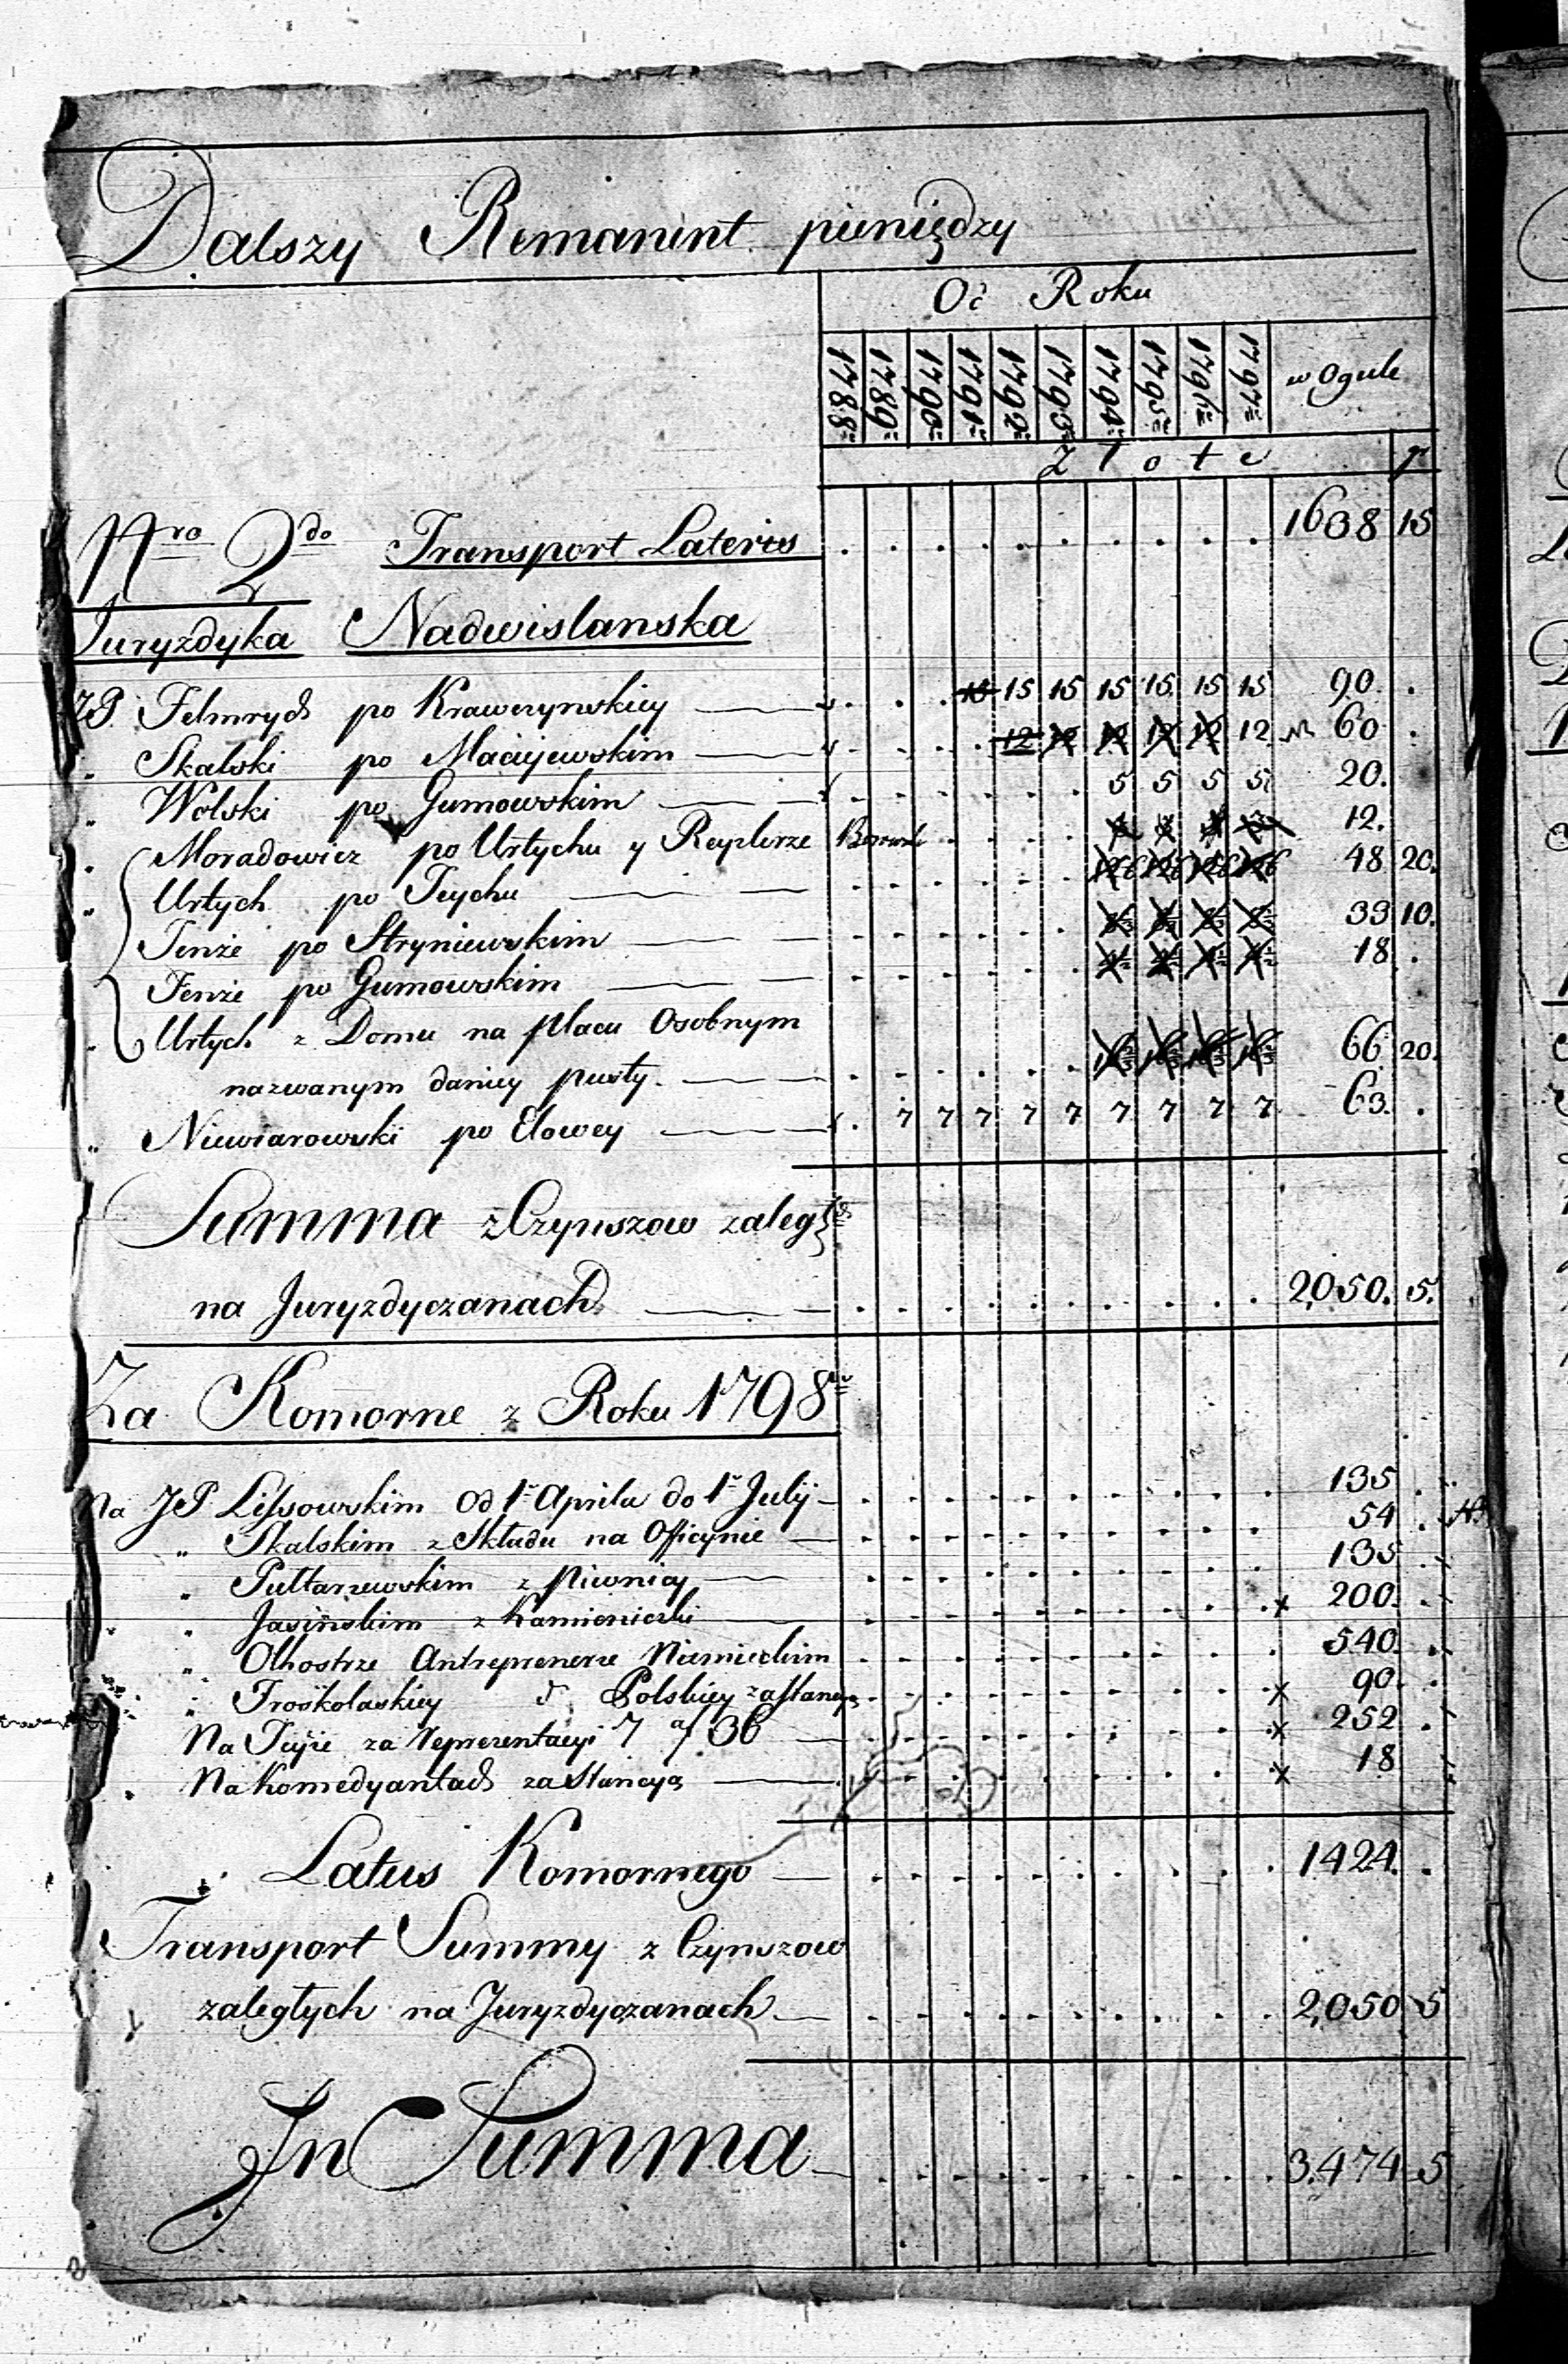 Dalszy Remanent pieniędzy
Od Roku
1788 1789 1790 1791 1792 1793 1794 1795 1796 1797 w Ogule
Złote gr
Nro 2do Transport Lateris . . . . . . . . . . 1638 15
Juryzdyka Nadwislanska
JP. Felmrych po Krawczynskiey . . . 15 15 15 15 15 15 15 90 .
" Skalski po Maciejewskim . . . . 12 12 12 12 12 12 60 .
" Wolski po Gumowskim . . . . . . 5 5 5 5 20.
" Moradowicz po Urtychu y Replerze 3 3 3 3 12.
" Urtych po Teychu . . . . . . 48 20.
Tenże po Stryniewskim . . . . . . 33 10.
Tenże po Gumowskim . . . . . . 18 .
" Urtych z Domu na placu Osobnym
nazwanym daniey pusty . . . . . . 66 20.
" Niewiarowski po Elowey . 7 7 7 7 7 7 7 7 7 63 .
Summa z Czynszow zaległch
na Juryzdyczanach . . . . . . . . . . 2,050. 5.
Za Komorne z Roku 1798
Na JP Lissowskim od 1 Aprila do 1 Julij 135
" Skalskim z Składu na Officynie 54
" Pułtarzewskim z piwnicy 135
" Jasińskim z Kamieniczki x 200.
" Olhostrze Antreprenerze Niemieckim 540.
" Troskolaskiey Polskiey za stancyą x 90
Na Teyże za reprezentacyi 7 a f 36 x 252
Na Komedyantach za Stancyą x 18
Latus Komornego 1424.
Transport Summy z Czynszow
zaległych na Juryzdyczanach 2,050 5
In Summa 3.474 5